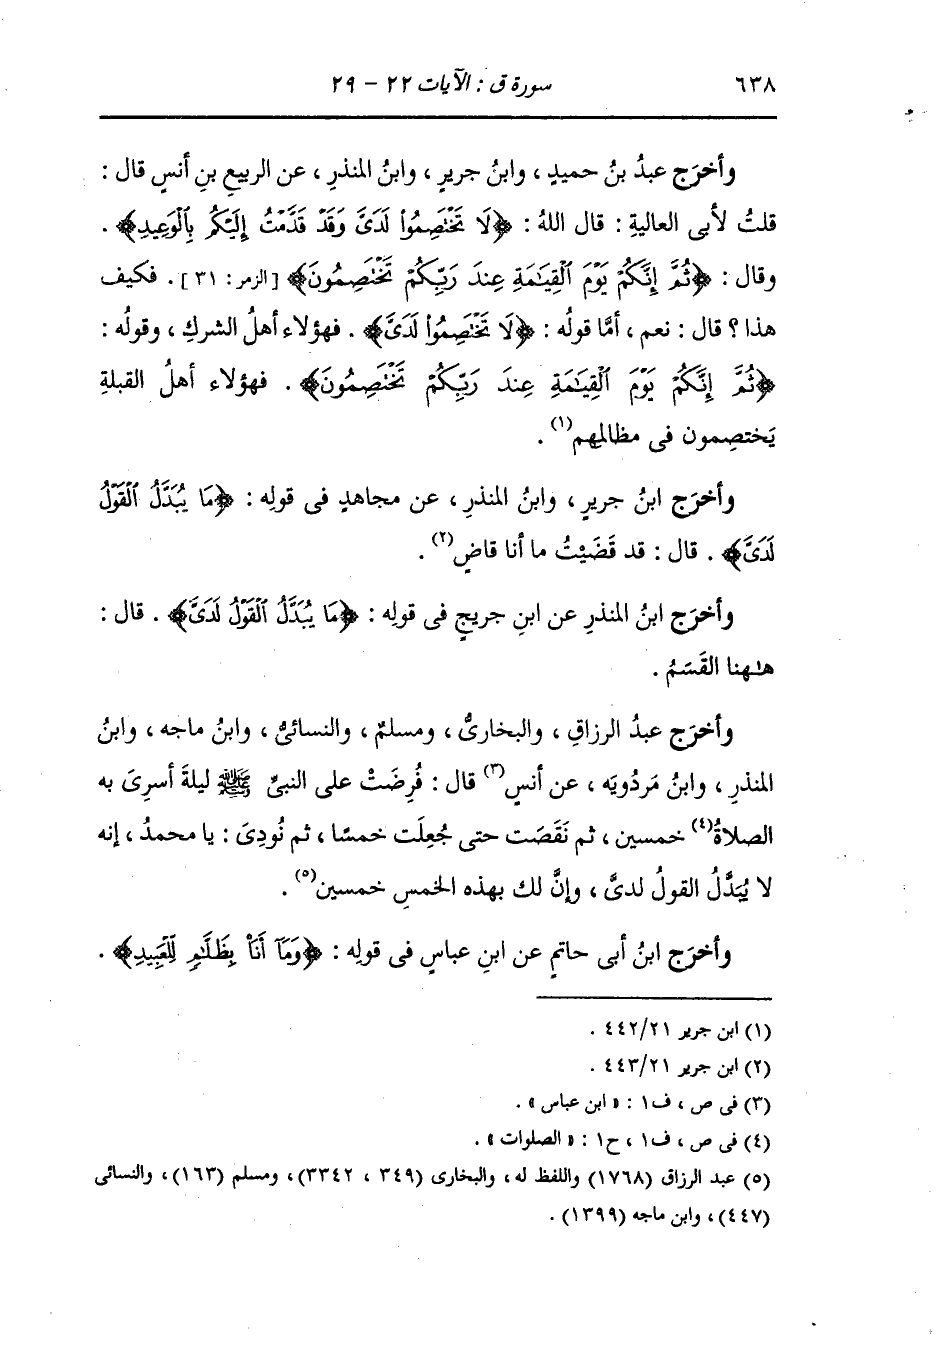 ٦٣٨ سورة ق : الآيات ٢٢ - ٢٩
وأخرَج عبدُ بنُ حميدٍ ، وابنُ جريرٍ ، وابنُ المنذرِ ، عن الربيعِ بنِ أنسٍ قال :
قلتُ لأبى العاليةِ : قال اللهُ : ﴿لَا تَخْتَصِمُوا۟ لَدَىَّ وَقَدْ قَدَّمْتُ إِلَيْكُم بِٱلْوَعِيدِ﴾ .
وقال : ﴿ثُمَّ إِنَّكُمْ يَوْمَ ٱلْقِيَـٰمَةِ عِندَ رَبِّكُمْ تَخْتَصِمُونَ﴾ [الزمر : ٣١] . فكيف
هذا ؟ قال : نعم ، أمَّا قولُه : ﴿لَا تَخْتَصِمُوا۟ لَدَىَّ﴾ . فهؤلاء أهلُ الشركِ ، وقولُه :
﴿ثُمَّ إِنَّكُمْ يَوْمَ ٱلْقِيَـٰمَةِ عِندَ رَبِّكُمْ تَخْتَصِمُونَ﴾ . فهؤلاء أهلُ القبلةِ
يَختصِمون فى مظالمِهم(١) .
وأخرَج ابنُ جريرٍ ، وابنُ المنذرِ ، عن مجاهدٍ فى قولِه : ﴿مَا يُبَدَّلُ ٱلْقَوْلُ
لَدَىَّ﴾ . قال : قد قَضَيْتُ ما أنا قاضٍ(٢) .
وأخرَج ابنُ المنذرِ عن ابنِ جريجٍ فى قولِه : ﴿مَا يُبَدَّلُ ٱلْقَوْلُ لَدَىَّ﴾ . قال :
هـٰهنا القَسَمُ .
وأخرَج عبدُ الرزاقِ ، والبخارىُّ ، ومسلمٌ ، والنسائىُّ ، وابنُ ماجه ، وابنُ
المنذرِ ، وابنُ مَردُويَه ، عن أنسٍ(٣) قال : فُرِضَتْ على النبىِّ ﷺ ليلةَ أسرِىَ به
الصلاةُ(٤) خمسين ، ثم نَقَصَت حتى جُعِلَت خمسًا ، ثم نُودِىَ : يا محمدُ ، إنه
لا يُبَدَّلُ القولُ لدىَّ ، وإنَّ لك بهذه الخمسِ خمسين(٥) .
وأخرَج ابنُ أبى حاتمٍ عن ابنِ عباسٍ فى قولِه : ﴿وَمَآ أَنَا۠ بِظَلَّـٰمٍ لِّلْعَبِيدِ﴾ .
(١) ابن جرير ٤٤٢/٢١ .
(٢) ابن جرير ٤٤٣/٢١ .
(٣) فى ص ، ف١ : « ابن عباس » .
(٤) فى ص ، ف١ ، ح١ : « الصلوات » .
(٥) عبد الرزاق (١٧٦٨) واللفظ له ، والبخارى (٣٤٩ ، ٣٣٤٢) ، ومسلم (١٦٣) ، والنسائى
(٤٤٧) ، وابن ماجه (١٣٩٩) .